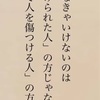 なきゃいけないのは
られた人」の方じゃな
人を傷つける人」の方